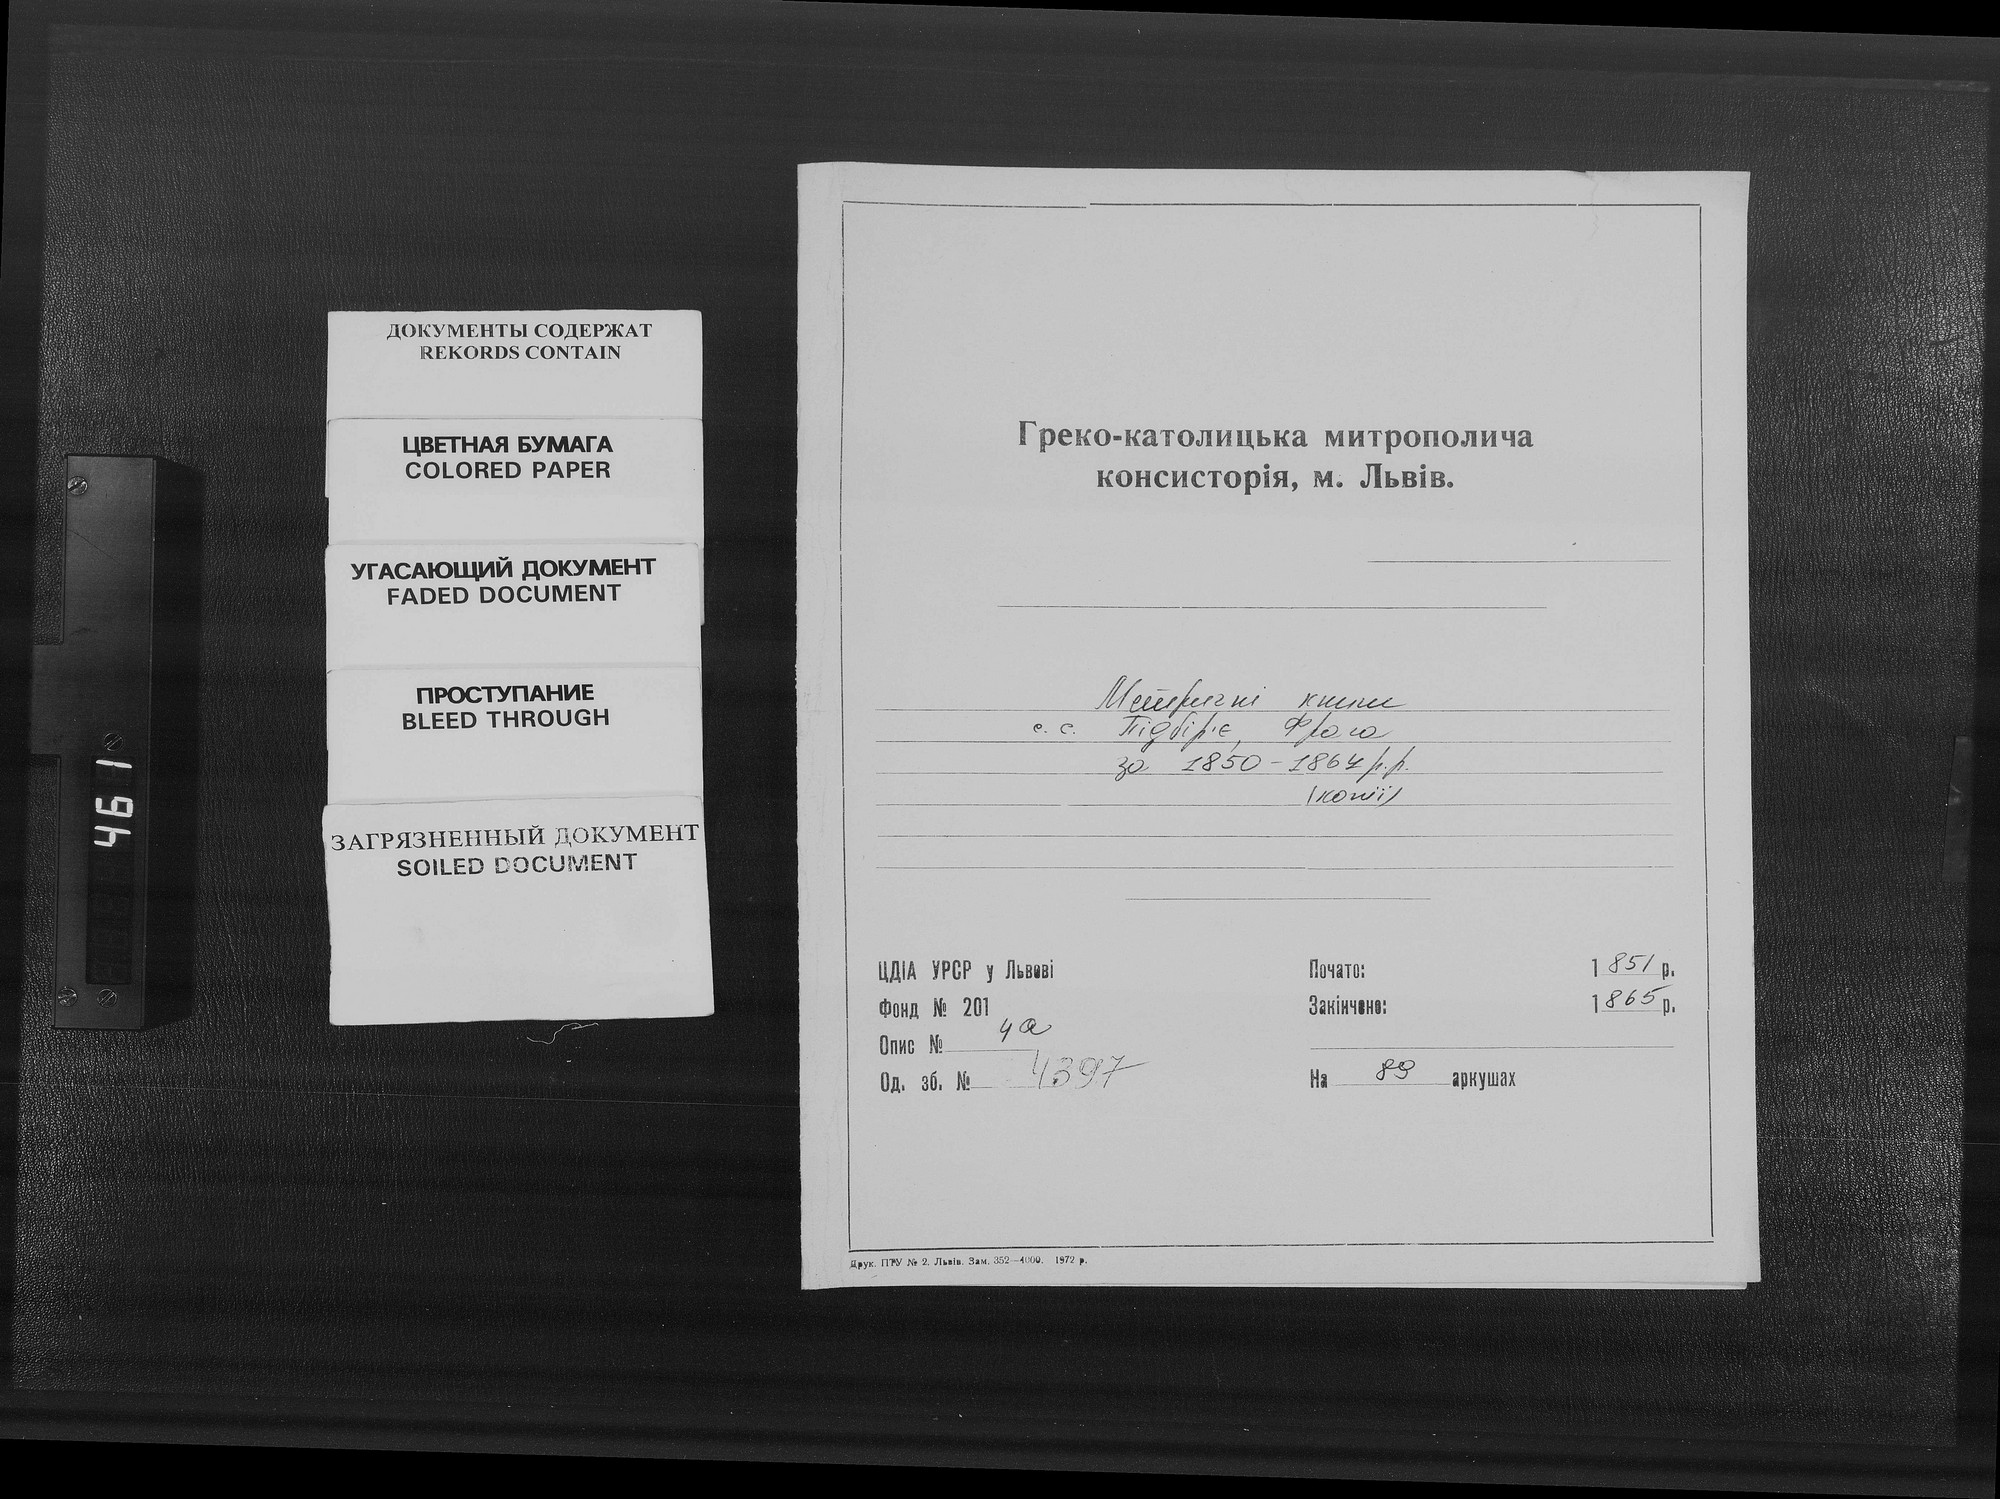 ДОКУМЕНТЫ СОДЕРЖАТ
REKORDS CONTAIN
ЦВЕТНАЯ БУМАГА
COLORED PAPER
УГАСАЮЩИЙ ДОКУМЕНТ
FADED DOCUMENT
ПРОСТУПАНИЕ
BLEED THROUGH
ЗАГРЯЗНЕННЫЙ ДОКУМЕНТ
SOILED DOCUMENT
461
Греко-католицька митрополича
консисторія, м. Львів.
Метричні книги
с. с. Підбір'є, Фрага
за 1850-1864 р.р.
(копії)
ЦДІА УРСР у Львові
Фонд № 201
Опис № 4а
Од. зб. № 4397
Почато: 1851 р.
Закінчено: 1865 р.
На 89 аркушах
Друк. ПТУ № 2. Львів. Зам. 352—4000. 1972 р.